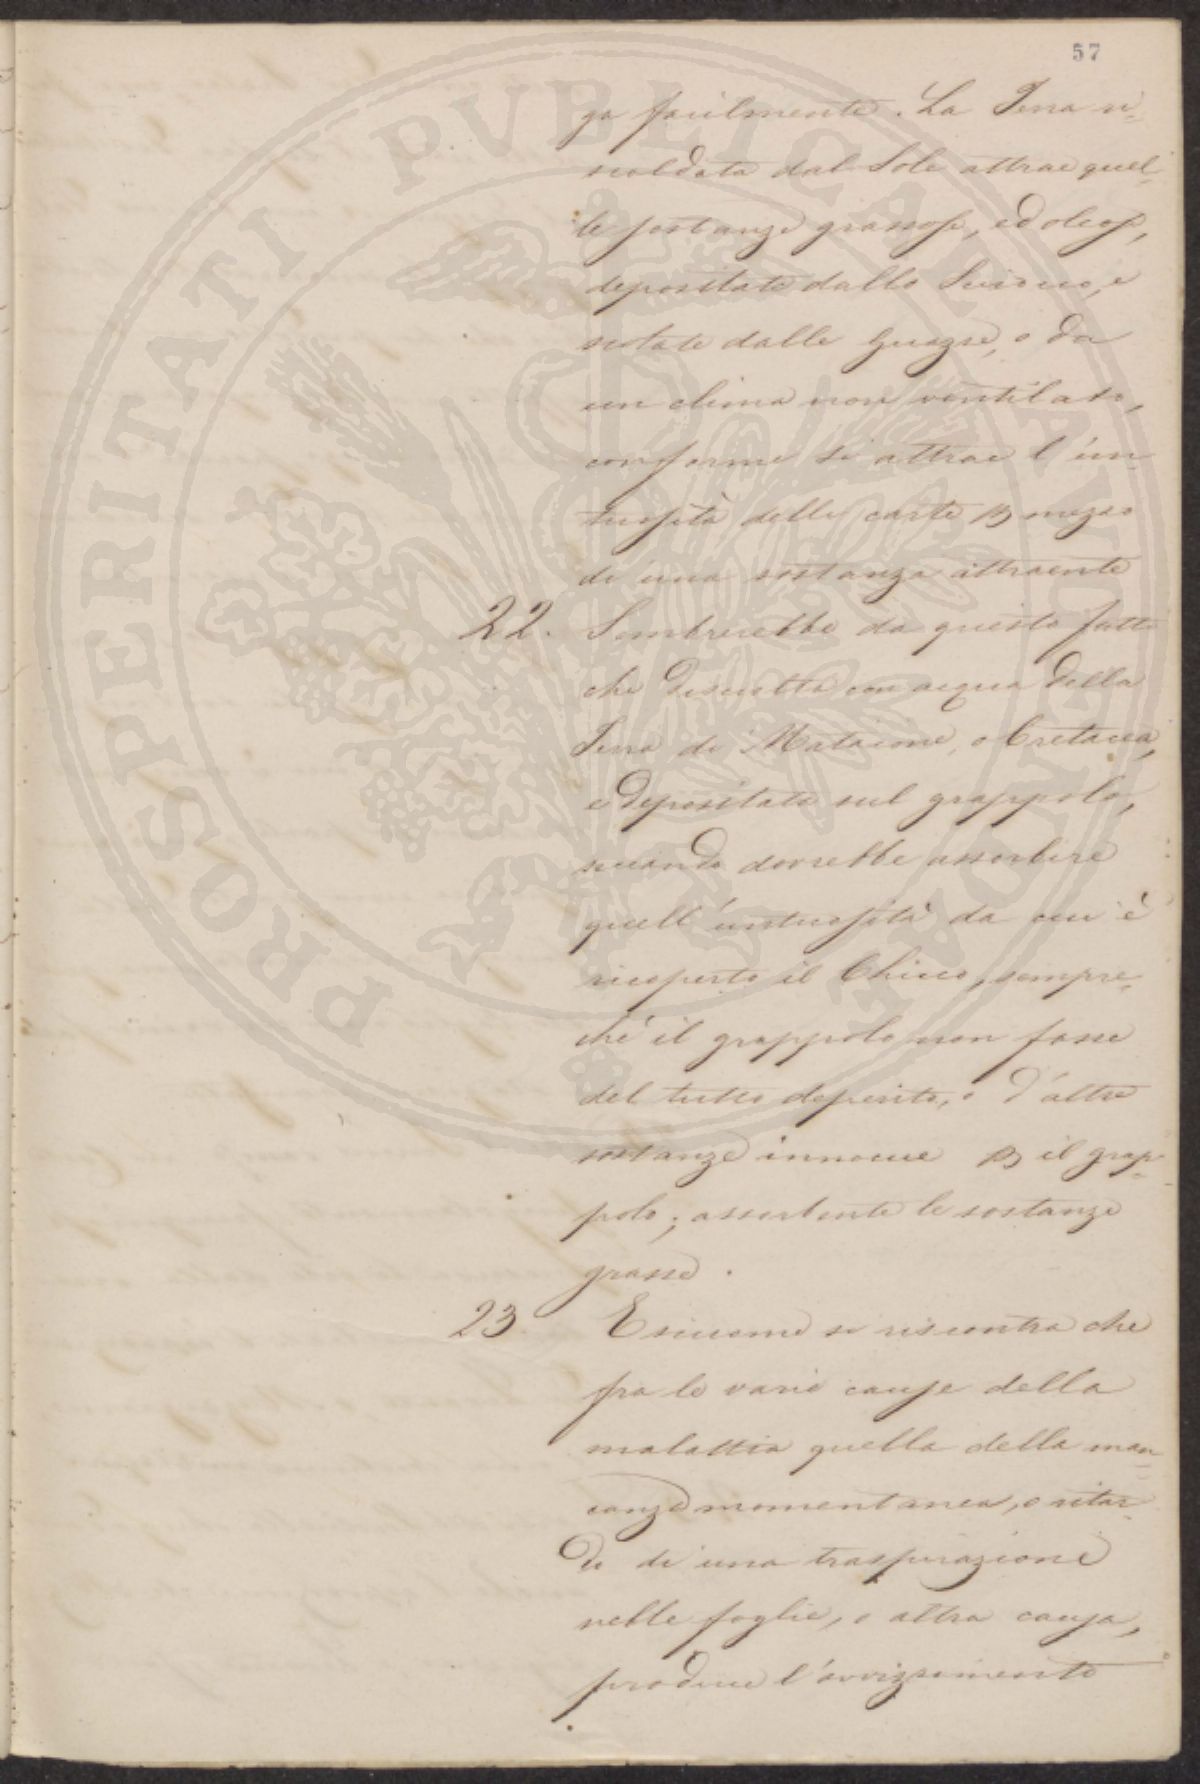 57
ga facilmente. La Terra ri=
scaldata dal Sole attrae quel=
le sostanze grasse, ed oleose,
depositate dallo Scirocco, e
restate dalle Guazze, o da
un clima non ventilato,
conforme si attrae l'un=
tuosità delle carte per mezzo
di una sostanza attraente
22. Sembrerebbe da questo fatto
che disciolta con acqua della
Terra di Mataione, o Cretacea,
e depositata sul grappolo,
seccando dovrebbe assorbire
quell'untuosità da cui è
ricoperto il Chicco, sempre=
ché il grappolo non fosse
del tutto deperito, o d'altre
sostanze innocue per il grap=
polo; assorbente le sostanze
grasse.
23 E siccome si riscontra che
fra le varie cause della
malattia quella della man=
canza momentanea, o ritar=
do di una traspirazione
nelle foglie, o altra causa,
produce l'avvizzimento
PROSPERITATI PVBLICAE AVGENDAE